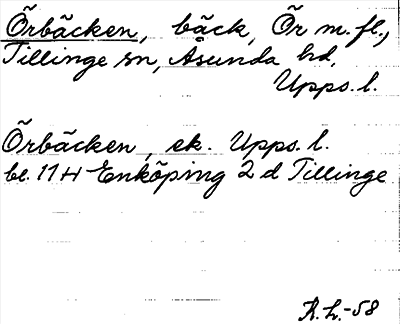 Örbäcken, bäck, Ör m.fl.,
Tillinge sn, Åsunda hd,
Upps. l.
Örbäcken, ek. Upps. l.
bl. 11 H Enköping 2 d Tillinge
R. L. -58